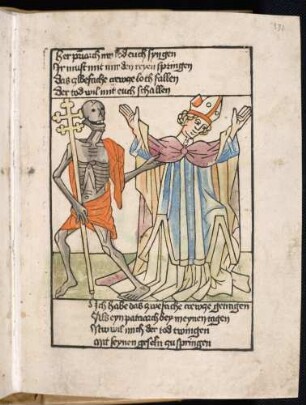 Her priarch der tod euch syngen
Ir must mit mir den reyen springen
Das zbesuche crewcze loth fallen
Der tod wil mit euch schallen
Ich habe das zwefache crewcze getragen
Als eyn patriarch bey meynen tagen
Nw wil mich der tod twingen
Mit seynen geseln zu springen